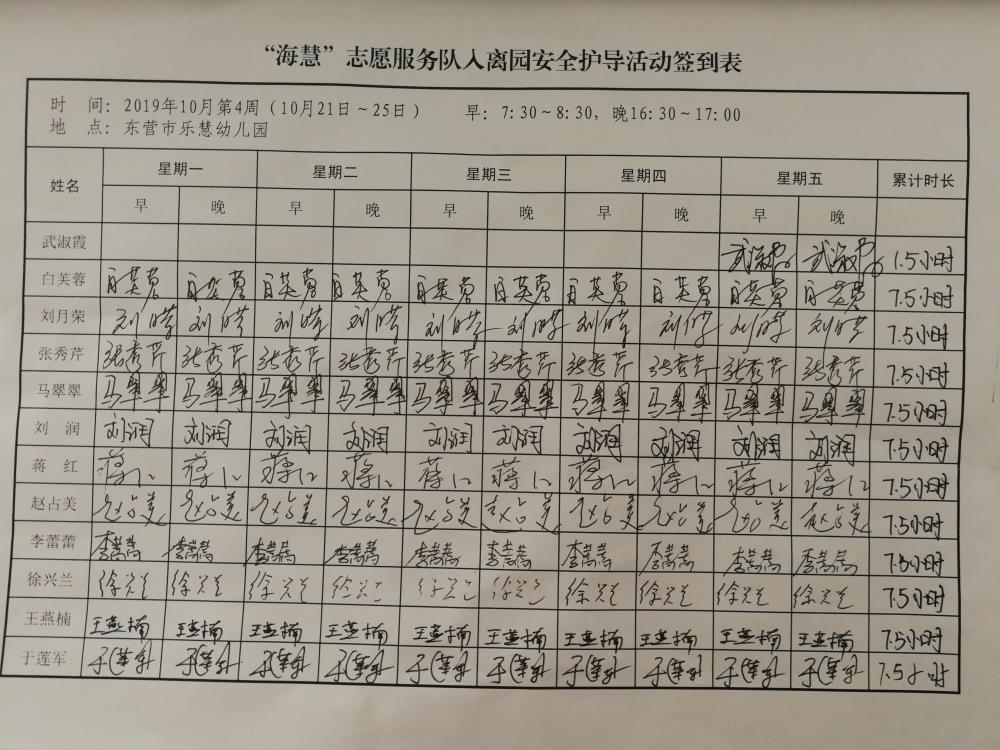 “海慧”志愿服务队入离园安全护导活动签到表
时 间：2019年10月第4周（10月21日～25日） 早：7:30～8:30，晚16:30～17:00
地 点：东营市乐慧幼儿园
姓名 星期一 星期二 星期三 星期四 星期五 累计时长
早 晚 早 晚 早 晚 早 晚 早 晚
武淑霞 武淑霞 武淑霞 1.5小时
白芙蓉 白芙蓉 白芙蓉 白芙蓉 白芙蓉 白芙蓉 白芙蓉 白芙蓉 白芙蓉 白芙蓉 白芙蓉 7.5小时
刘月荣 刘月荣 刘月荣 刘月荣 刘月荣 刘月荣 刘月荣 刘月荣 刘月荣 刘月荣 刘月荣 7.5小时
张秀芹 张秀芹 张秀芹 张秀芹 张秀芹 张秀芹 张秀芹 张秀芹 张秀芹 张秀芹 张秀芹 7.5小时
马翠翠 马翠翠 马翠翠 马翠翠 马翠翠 马翠翠 马翠翠 马翠翠 马翠翠 马翠翠 马翠翠 7.5小时
刘 润 刘润 刘润 刘润 刘润 刘润 刘润 刘润 刘润 刘润 刘润 7.5小时
蒋 红 蒋红 蒋红 蒋红 蒋红 蒋红 蒋红 蒋红 蒋红 蒋红 蒋红 7.5小时
赵占美 赵占美 赵占美 赵占美 赵占美 赵占美 赵占美 赵占美 赵占美 赵占美 赵占美 7.5小时
李蕾蕾 李蕾蕾 李蕾蕾 李蕾蕾 李蕾蕾 李蕾蕾 李蕾蕾 李蕾蕾 李蕾蕾 李蕾蕾 李蕾蕾 7.5小时
徐兴兰 徐兴兰 徐兴兰 徐兴兰 徐兴兰 徐兴兰 徐兴兰 徐兴兰 徐兴兰 徐兴兰 徐兴兰 7.5小时
王燕楠 王燕楠 王燕楠 王燕楠 王燕楠 王燕楠 王燕楠 王燕楠 王燕楠 王燕楠 王燕楠 7.5小时
于莲军 于莲军 于莲军 于莲军 于莲军 于莲军 于莲军 于莲军 于莲军 于莲军 于莲军 7.5小时